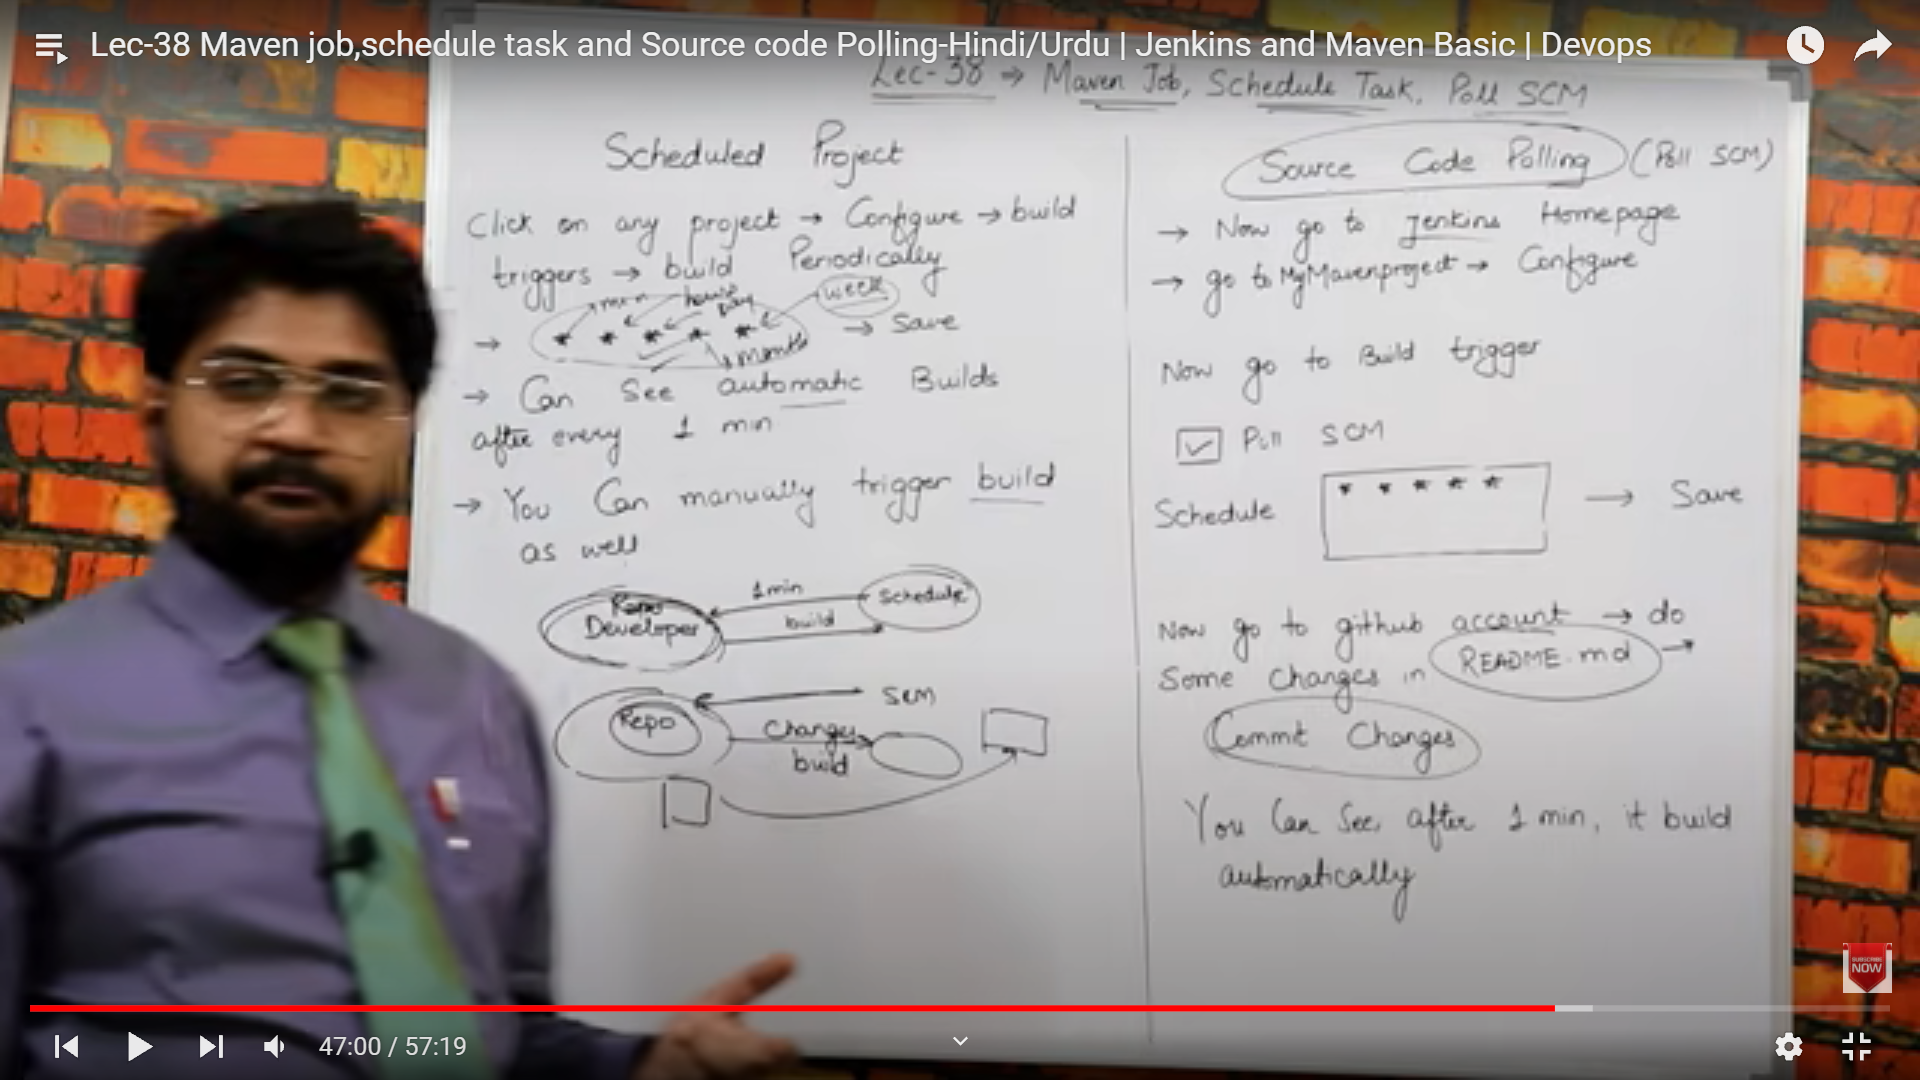 Lec-38 Maven job,schedule task and Source code Polling-Hindi/Urdu | Jenkins and Maven Basic | Devops
Lec-38 → Maven Job, Schedule Task, Poll SCM
Scheduled Project
Click on any project → Configure → build
triggers → build Periodically
min hour Day week
→ * * * * * → Save
month
→ Can See automatic Builds
after every 1 min
→ You Can manually trigger build
as well
1min Schedule
Developer build
SCM
Repo Changes
build
Source Code Polling (Poll SCM)
→ Now go to Jenkins Homepage
→ go to MyMavenproject → Configure
Now go to Build trigger
Poll SCM
Schedule * * * * * → Save
Now go to github account → do
Some Changes in README.md →
Commit Changes
You Can See, after 1 min, it build
automatically
SUBSCRIBE
NOW
47:00 / 57:19